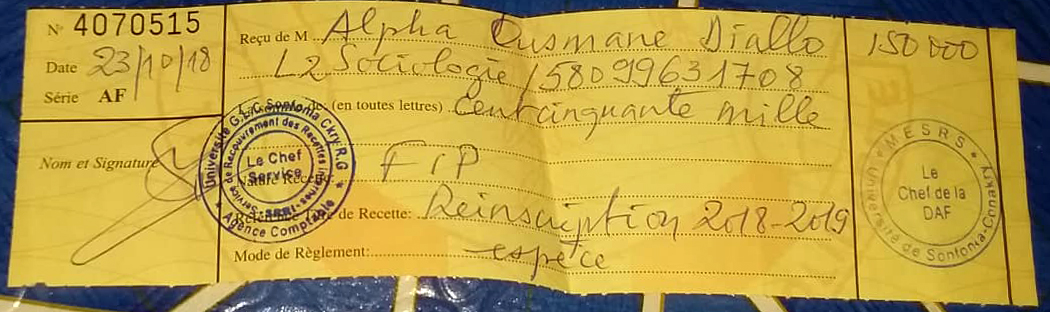 N° 4070515
Date 23/10/18
Série AF
Nom et Signature
Reçu de M Alpha Ousmane Diallo
L2 Sociologie / 58099631708
(en toutes lettres) Cent cinquante mille
FIP
Nature Recette
de Recette: Réinscription 2018-2019
Mode de Règlement: espèce
150 000
Université G.L.C Sonfonia Ckry R.G
Service de Recouvrement des Recettes Internes
Le Chef
Service
Agence Comptable
MESRS
Le
Chef de la
DAF
Université de Sonfonia-Conakry